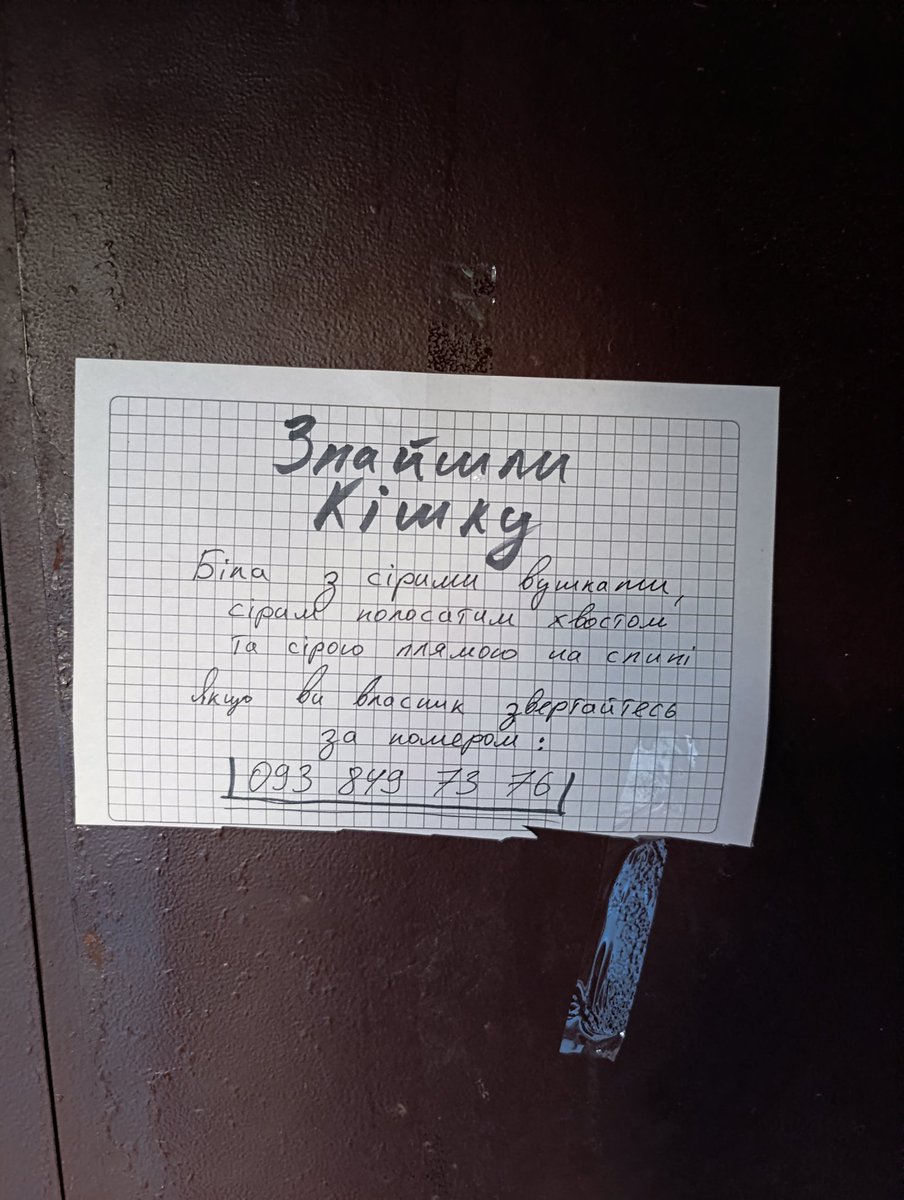 Знайшли
Кішку
Біла з сірими вушками,
сірим полосатим хвостом
та сірою плямою на спині
якщо ви власник звертайтесь
за номером:
093 849 73 76